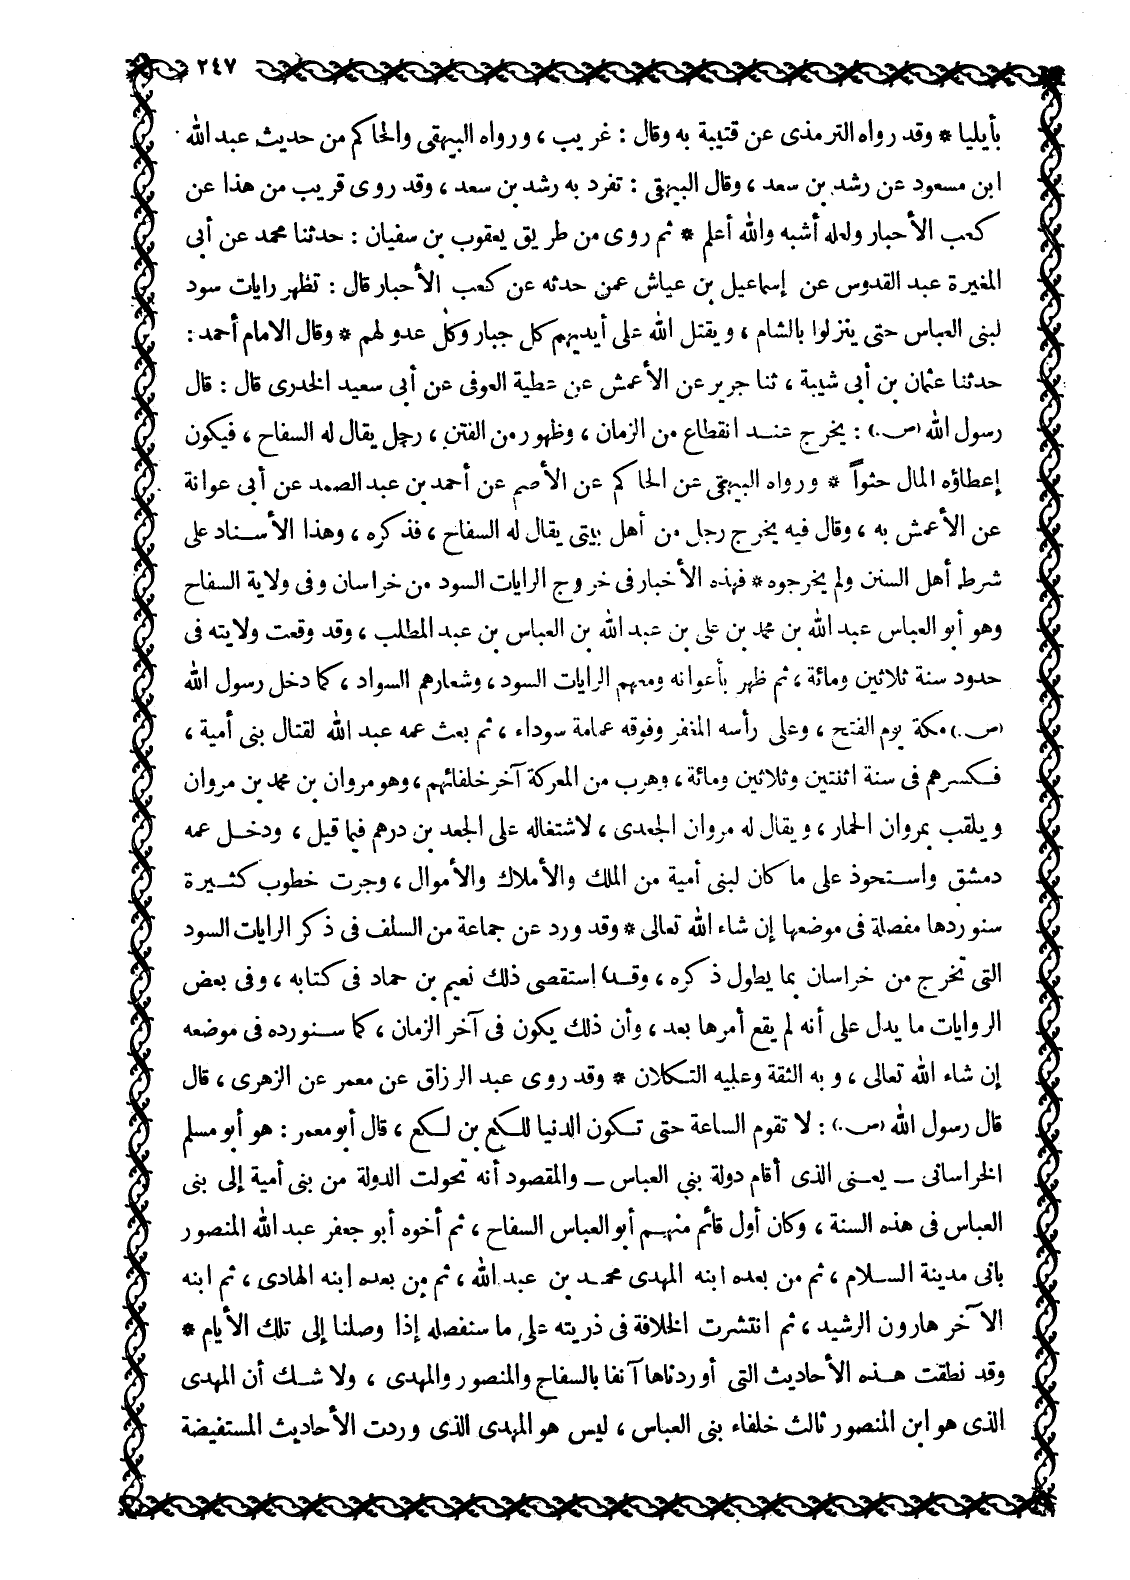 ٢٤٧
بأيليا * وقد رواه الترمذى عن قتيبة به وقال : غريب ، ورواه البيهقى والحاكم من حديث عبد الله
ابن مسعود عن رشد بن سعد ، وقال البيهقى : تفرد به رشد بن سعد ، وقد روى قريب من هذا عن
كعب الأحبار ولعله أشبه والله أعلم * ثم روى من طريق يعقوب بن سفيان : حدثنا محمد عن أبى
المغيرة عبد القدوس عن إسماعيل بن عياش عمن حدثه عن كعب الأحبار قال : تظهر رايات سود
لبنى العباس حتى ينزلوا بالشام ، ويقتل الله على أيديهم كل جبار وكل عدو لهم * وقال الامام أحمد :
حدثنا عثمان بن أبى شيبة ، ثنا جرير عن الأعمش عن عطية العوفى عن أبى سعيد الخدرى قال : قال
رسول الله (ص.) : يخرج عند انقطاع من الزمان ، وظهور من الفتن ، رجل يقال له السفاح ، فيكون
إعطاؤه المال حثواً * ورواه البيهقى عن الحاكم عن الأصم عن أحمد بن عبد الصمد عن أبى عوانة
عن الأعمش به ، وقال فيه يخرج رجل من أهل بيتى يقال له السفاح ، فذكره ، وهذا الأسناد على
شرط أهل السنن ولم يخرجوه * فهذه الأخبار فى خروج الرايات السود من خراسان وفى ولاية السفاح
وهو أبو العباس عبد الله بن محمد بن على بن عبد الله بن العباس بن عبد المطلب ، وقد وقعت ولايته فى
حدود سنة ثلاثين ومائة ، ثم ظهر بأعوانه ومعهم الرايات السود ، وشعارهم السواد ، كما دخل رسول الله
(ص.) مكة يوم الفتح ، وعلى رأسه المغفر وفوقه عمامة سوداء ، ثم بعث عمه عبد الله لقتال بنى أمية ،
فكسرهم فى سنة اثنتين وثلاثين ومائة ، وهرب من المعركة آخر خلفائهم ، وهو مروان بن محمد بن مروان
ويلقب بمروان الحمار ، ويقال له مروان الجعدى ، لاشتغاله على الجعد بن درهم فيما قيل ، ودخل عمه
دمشق واستحوذ على ما كان لبنى أمية من الملك والأملاك والأموال ، وجرت خطوب كثيرة
سنوردها مفصلة فى موضعها إن شاء الله تعالى * وقد ورد عن جماعة من السلف فى ذكر الرايات السود
التى تخرج من خراسان بما يطول ذكره ، وقد استقصى ذلك نعيم بن حماد فى كتابه ، وفى بعض
الروايات ما يدل على أنه لم يقع أمرها بعد ، وأن ذلك يكون فى آخر الزمان ، كما سنورده فى موضعه
إن شاء الله تعالى ، وبه الثقة وعليه التكلان * وقد روى عبد الرزاق عن معمر عن الزهرى ، قال
قال رسول الله (ص.) : لا تقوم الساعة حتى تكون الدنيا للكع بن لكع ، قال أبو معمر : هو أبو مسلم
الخراسانى ــ يعنى الذى أقام دولة بني العباس ــ والمقصود أنه تحولت الدولة من بنى أمية إلى بنى
العباس فى هذه السنة ، وكان أول قائم منهم أبو العباس السفاح ، ثم أخوه أبو جعفر عبد الله المنصور
بانى مدينة السلام ، ثم من بعده ابنه المهدى محمد بن عبد الله ، ثم من بعده ابنه الهادى ، ثم ابنه
الآخر هارون الرشيد ، ثم انتشرت الخلافة فى ذريته على ما سنفصله إذا وصلنا إلى تلك الأيام *
وقد نطقت هذه الأحاديث التى أوردناها آنفا بالسفاح والمنصور والمهدى ، ولا شك أن المهدى
الذى هو ابن المنصور ثالث خلفاء بنى العباس ، ليس هو المهدى الذى وردت الأحاديث المستفيضة